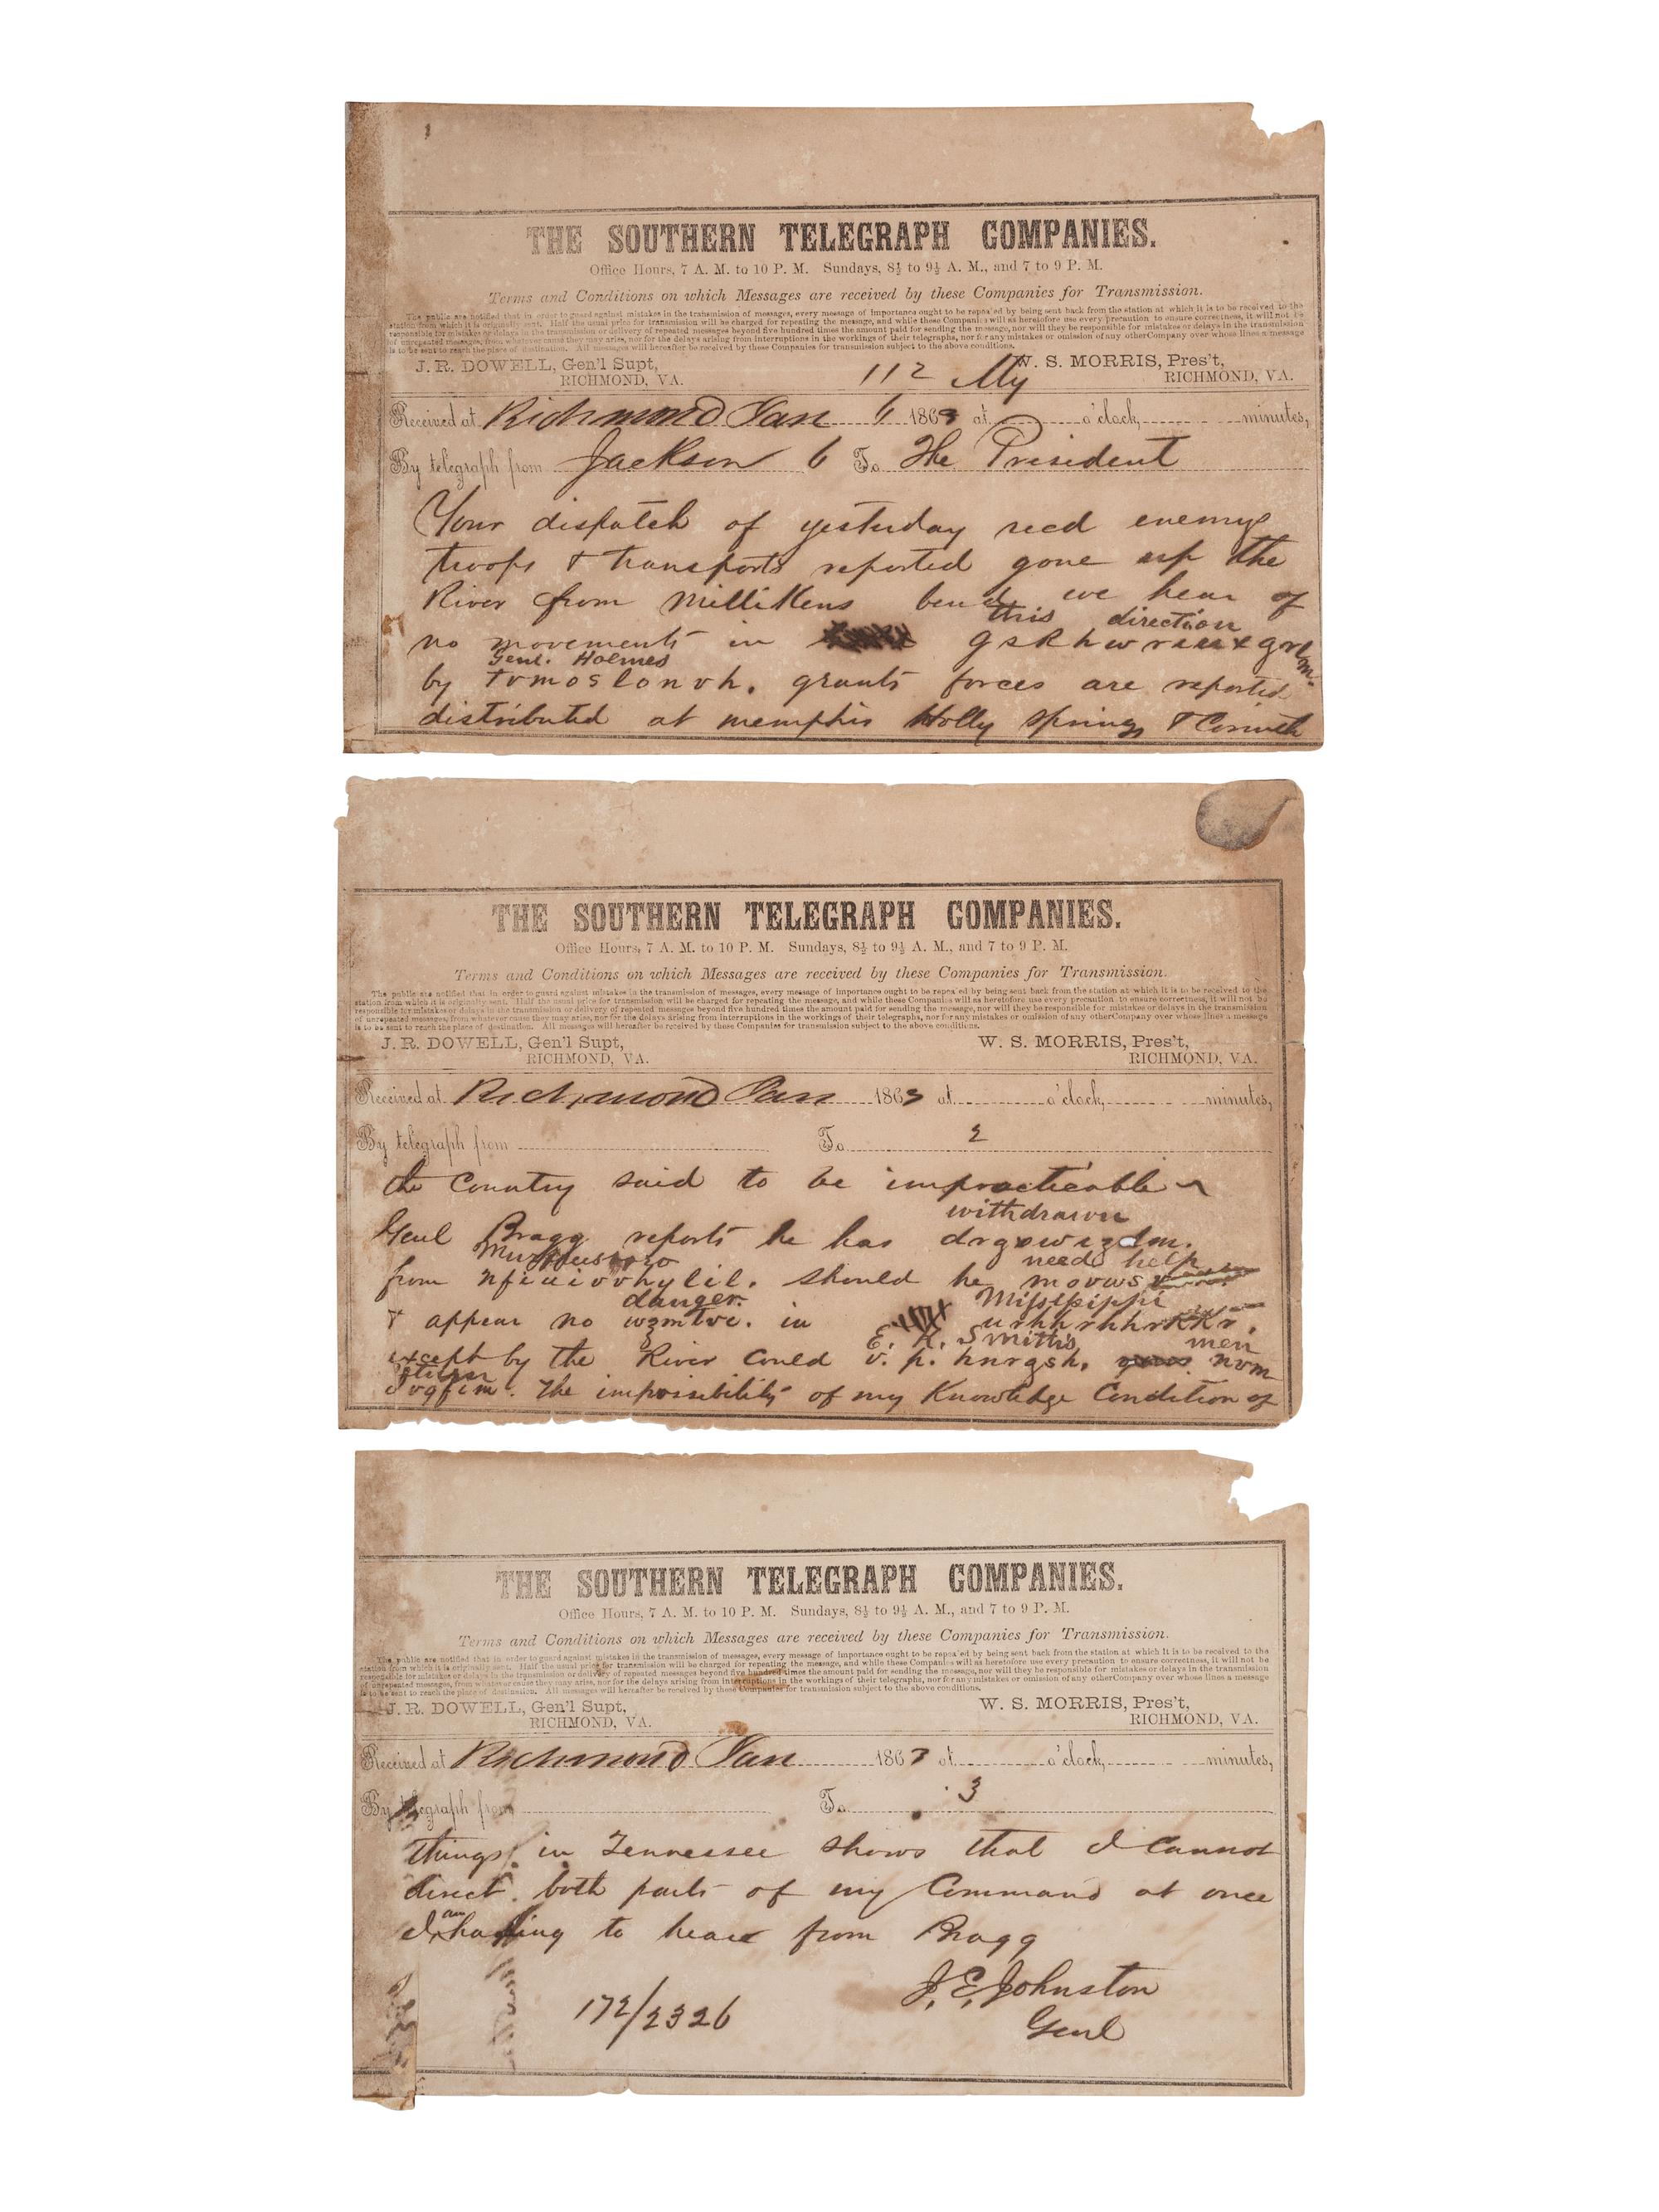 1
THE SOUTHERN TELEGRAPH COMPANIES.
Office Hours, 7 A. M. to 10 P. M. Sundays, 8½ to 9½ A. M., and 7 to 9 P. M.
Terms and Conditions on which Messages are received by these Companies for Transmission.
The public are notified that in order to guard against mistakes in the transmission of messages, every message of importance ought to be repea'ed by being sent back from the station at which it is to be received to the
station from which it is originally sent. Half the usual price for transmission will be charged for repeating the message, and while these Companies will as heretofore use every precaution to ensure correctness, it will not be
responsible for mistakes or delays in the transmission or delivery of repeated messages beyond five hundred times the amount paid for sending the message, nor will they be responsible for mistakes or delays in the transmission
of unrepeated messages, from whatever cause they may arise, nor for the delays arising from interruptions in the workings of their telegraphs, nor for any mistakes or omission of any other Company over whose lines a message
is to be sent to reach the place of destination. All messages will hereafter be received by these Companies for transmission subject to the above conditions.
J. R. DOWELL, Gen'l Supt, W. S. MORRIS, Pres't,
RICHMOND, VA. 112 RICHMOND, VA.
Received at Richmond Jan 6 1863 at o'clock, minutes,
By telegraph from Jackson 6 To The President
Your dispatch of yesterday recd enemys
troops & transports reported gone up the
River from Millikens bend we hear of
this direction
no movements in
Genl. Holmes
by tvmoslonvh. grants forces are reported
distributed at memphis Holly Springs & Corinth
THE SOUTHERN TELEGRAPH COMPANIES.
Office Hours, 7 A. M. to 10 P. M. Sundays, 8½ to 9½ A. M., and 7 to 9 P. M.
Terms and Conditions on which Messages are received by these Companies for Transmission.
The public are notified that in order to guard against mistakes in the transmission of messages, every message of importance ought to be repea'ed by being sent back from the station at which it is to be received to the
station from which it is originally sent. Half the usual price for transmission will be charged for repeating the message, and while these Companies will as heretofore use every precaution to ensure correctness, it will not be
responsible for mistakes or delays in the transmission or delivery of repeated messages beyond five hundred times the amount paid for sending the message, nor will they be responsible for mistakes or delays in the transmission
of unrepeated messages, from whatever cause they may arise, nor for the delays arising from interruptions in the workings of their telegraphs, nor for any mistakes or omission of any other Company over whose lines a message
is to be sent to reach the place of destination. All messages will hereafter be received by these Companies for transmission subject to the above conditions.
J. R. DOWELL, Gen'l Supt, W. S. MORRIS, Pres't,
RICHMOND, VA. RICHMOND, VA.
Received at Richmond Jan 1863 at o'clock, minutes,
By telegraph from To 2
the Country said to be impracticable
withdrawn
Genl Bragg reports he has
Murfreesboro need help
from should he
danger. Mississippi
& appear no in
E. K. Smiths men
except by the River Could v. p. hnrgsh. nvm
The impossibility of my Knowledge Condition of
THE SOUTHERN TELEGRAPH COMPANIES.
Office Hours, 7 A. M. to 10 P. M. Sundays, 8½ to 9½ A. M., and 7 to 9 P. M.
Terms and Conditions on which Messages are received by these Companies for Transmission.
The public are notified that in order to guard against mistakes in the transmission of messages, every message of importance ought to be repea'ed by being sent back from the station at which it is to be received to the
station from which it is originally sent. Half the usual price for transmission will be charged for repeating the message, and while these Companies will as heretofore use every precaution to ensure correctness, it will not be
responsible for mistakes or delays in the transmission or delivery of repeated messages beyond five hundred times the amount paid for sending the message, nor will they be responsible for mistakes or delays in the transmission
of unrepeated messages, from whatever cause they may arise, nor for the delays arising from interruptions in the workings of their telegraphs, nor for any mistakes or omission of any other Company over whose lines a message
is to be sent to reach the place of destination. All messages will hereafter be received by these Companies for transmission subject to the above conditions.
J. R. DOWELL, Gen'l Supt, W. S. MORRIS, Pres't,
RICHMOND, VA. RICHMOND, VA.
Received at Richmond Jan 1863 at o'clock, minutes,
By telegraph from To 3
things in Tennessee shows that I Cannot
direct both parts of my Command at once
I am to hear from Bragg
J. E. Johnston
172/2326 Genl